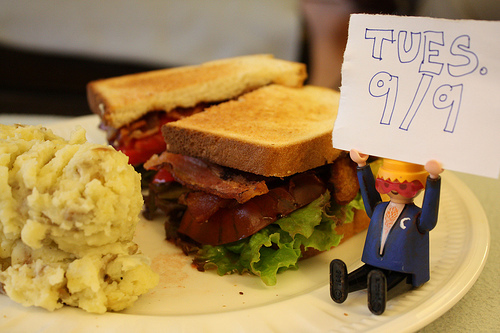 TUES.
9/9